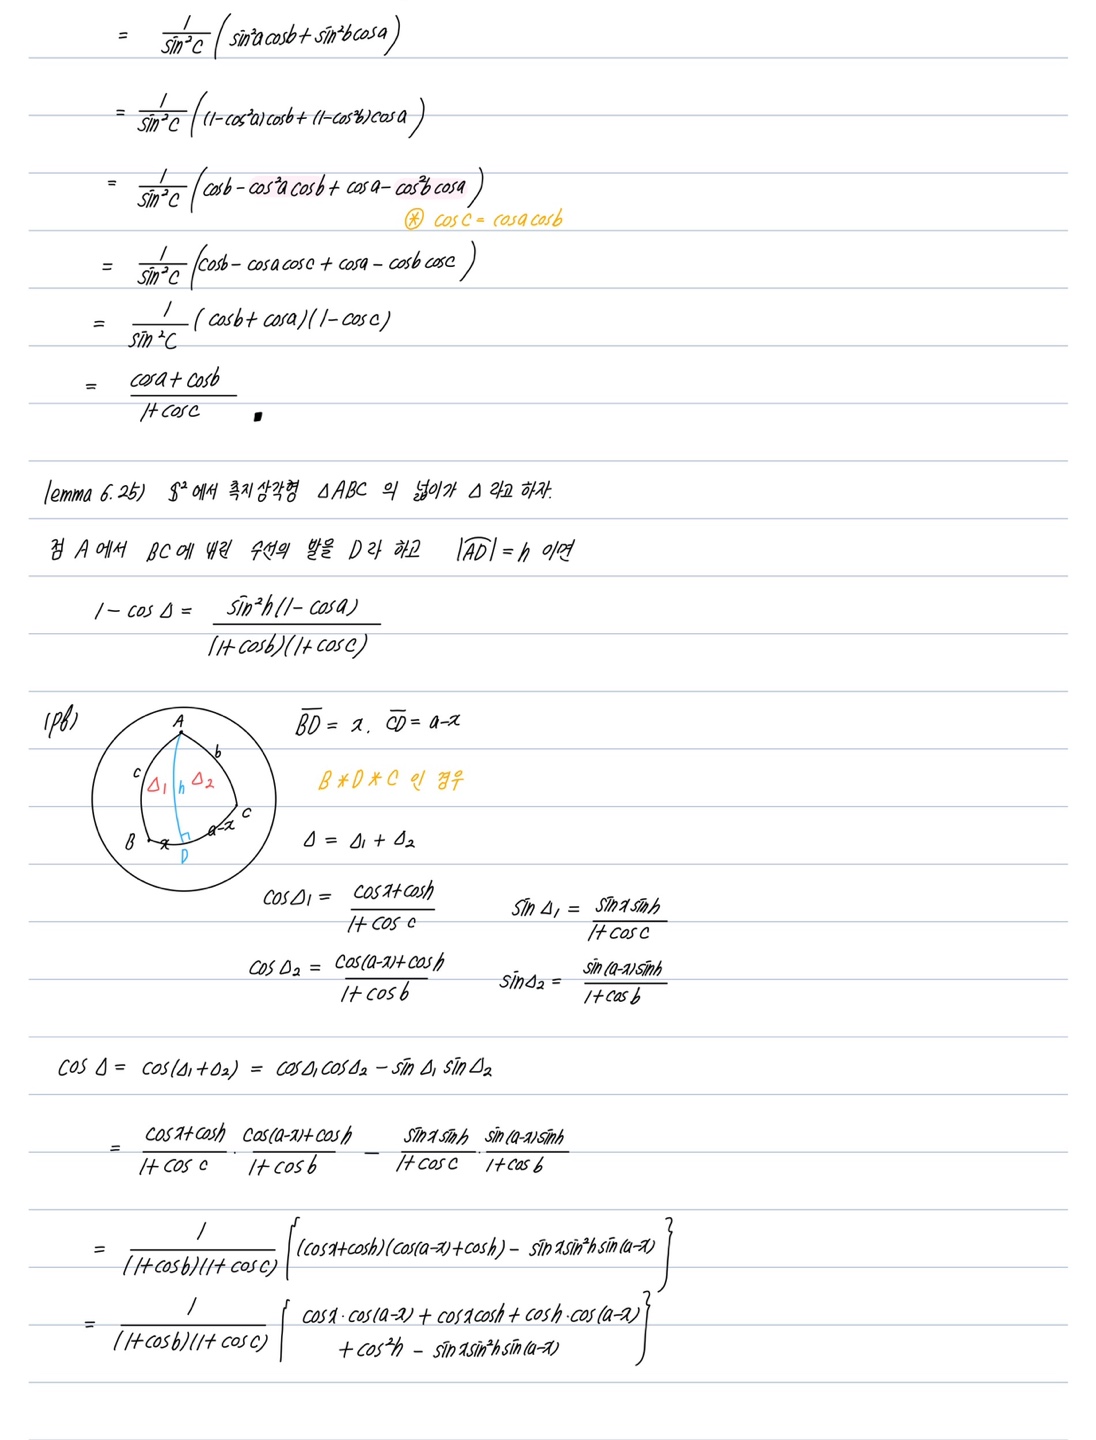 = 1/sin²C (sin²a cosb + sin²b cosa)
= 1/sin²C ((1-cos²a)cosb + (1-cos²b)cosa)
= 1/sin²C (cosb - cos²a cosb + cosa - cos²b cosa)
⊛ cosc = cosa cosb
= 1/sin²C (cosb - cosa cosc + cosa - cosb cosc)
= 1/sin²C (cosb + cosa)(1-cosc)
= (cosa + cosb)/(1+cosc) ▪
lemma 6.25) $² 에서 측지삼각형 △ABC 의 넓이가 △ 라고 하자.
점 A 에서 BC에 내린 수선의 발을 D라 하고 |AD| = h 이면
1 - cos△ = sin²h(1-cosa)/((1+cosb)(1+cosc))
(pf) BD = x, CD = a-x
A
b
c △₁ h △₂
C
B x D a-x
B*D*C 인 경우
△ = △₁ + △₂
cos△₁ = (cosx+cosh)/(1+cosc) sin△₁ = sinx sinh/(1+cosc)
cos△₂ = (cos(a-x)+cosh)/(1+cosb) sin△₂ = sin(a-x)sinh/(1+cosb)
cos△ = cos(△₁+△₂) = cos△₁cos△₂ - sin△₁ sin△₂
= (cosx+cosh)/(1+cosc) · (cos(a-x)+cosh)/(1+cosb) - sinx sinh/(1+cosc) · sin(a-x)sinh/(1+cosb)
= 1/((1+cosb)(1+cosc)) {(cosx+cosh)(cos(a-x)+cosh) - sinx sin²h sin(a-x)}
= 1/((1+cosb)(1+cosc)) { cosx·cos(a-x) + cosx cosh + cosh·cos(a-x)
+ cos²h - sinx sin²h sin(a-x) }